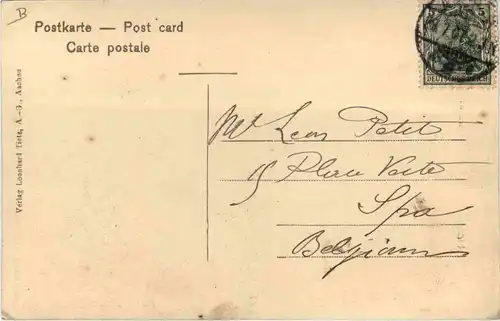 B
Postkarte — Post card
Carte postale
5 5
DEUTSCHES REICH
Verlag Leonhard Tietz, A.-G., Aachen
Mr Leon Petit
15 Place Verte
Spa
Belgium